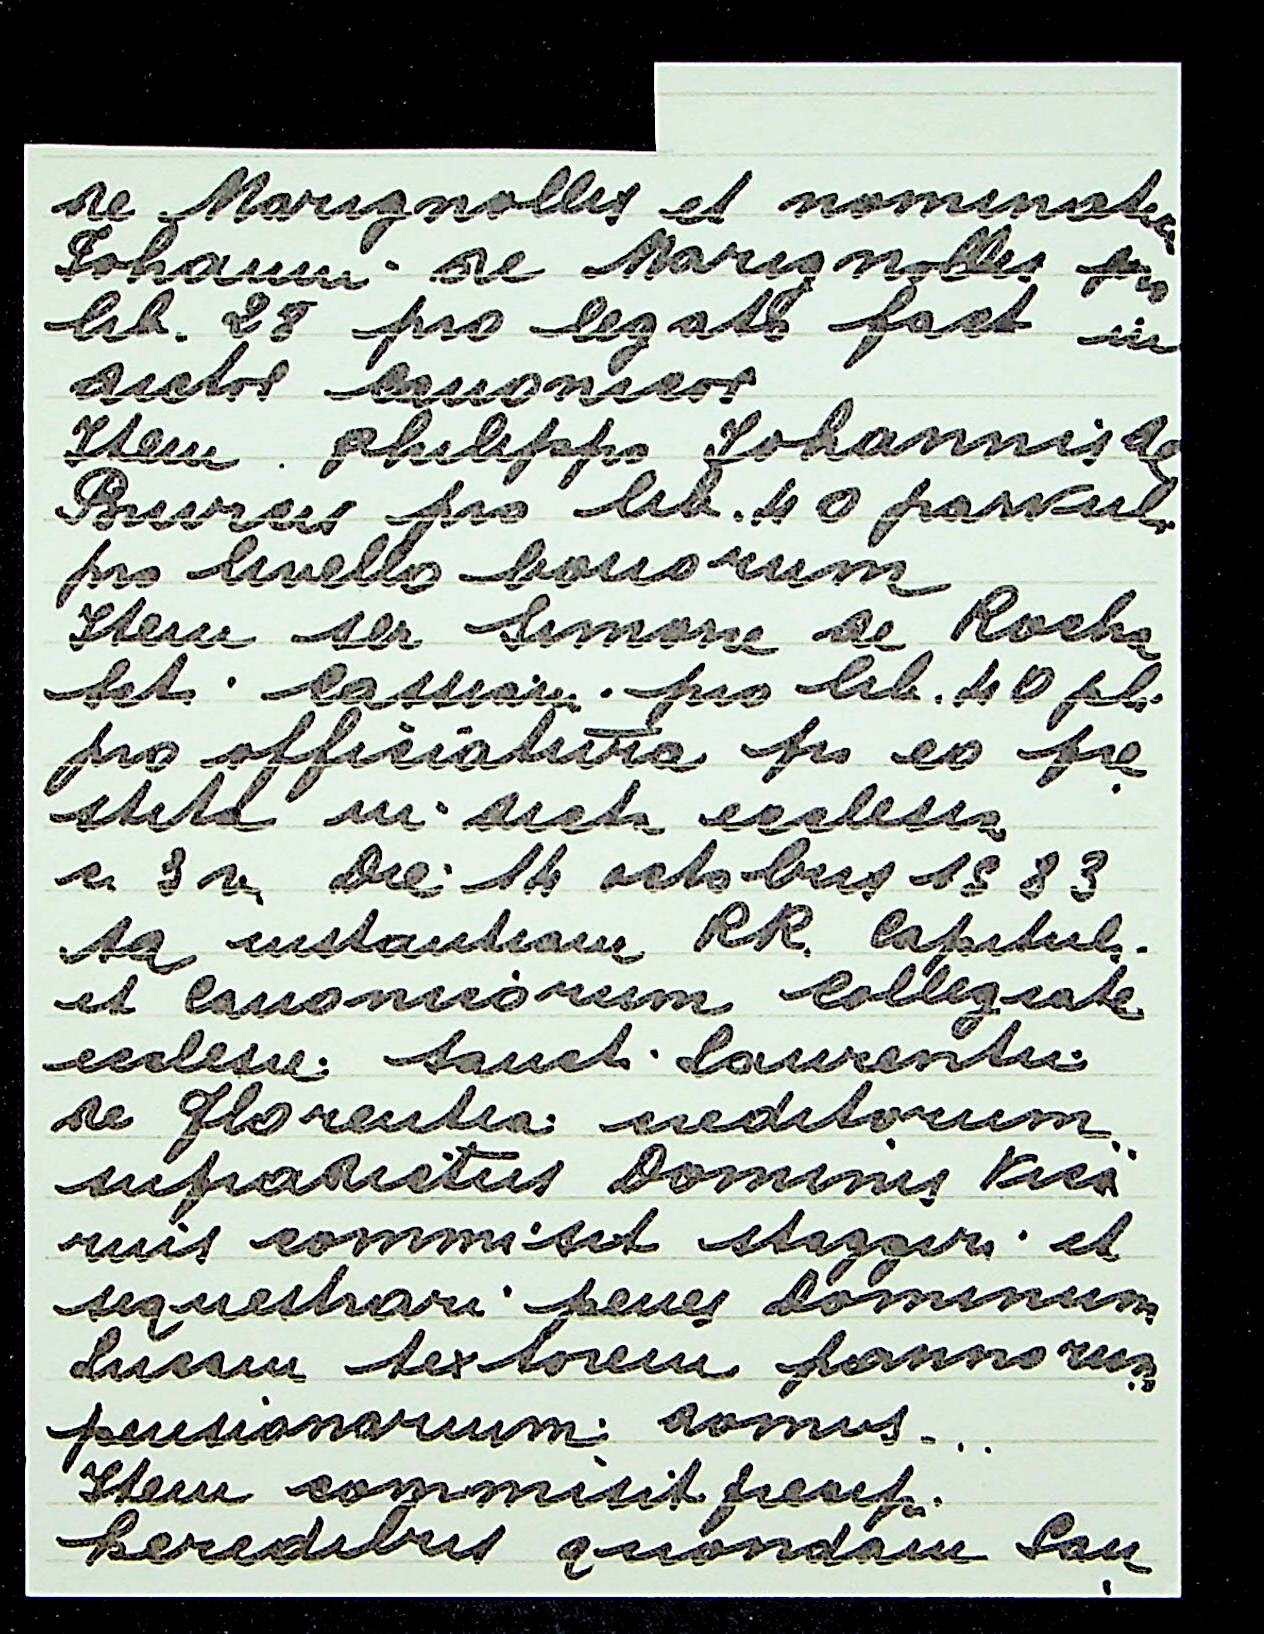 de Marignolles et nominat
Johanni de Marignolles
lib. 28 pro legato fact in
dictos canonicos
Item Philippo Johannis de
pro lib. 40
pro livello bonorum
Item ser Simone de Rocha
Set. Cassian. pro lib. 40
pro officiatura p eo pre
stita in dicta ecclesia
Die 14 octobris 1383
Ad instantiam RR. Capituli
et Canonicorum Collegiate
ecclesie Sanct. Laurentii
de Florentia creditorum
supradictus Dominus Vica
rius commisit staggiri et
sequestrari penes Dominum
textorem pannorum
pensionarium domus...
Item commisit
heredibus quondam